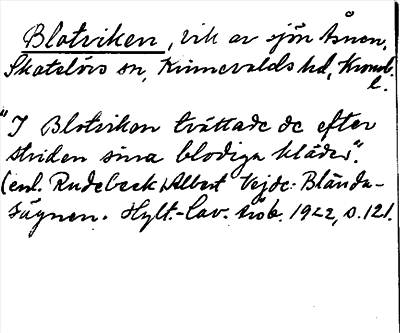 Blotviken, vik av sjön Åsnen,
Skatelövs sn, Kinnevalds hd, Kronob.
l.
"I Blotviken tvättade de efter
striden sina blodiga kläder".
(enl. Rudebeck) Albert Vejde: Blända-
sägnen. Hylt.-Cav. årsb. 1922, s. 121.